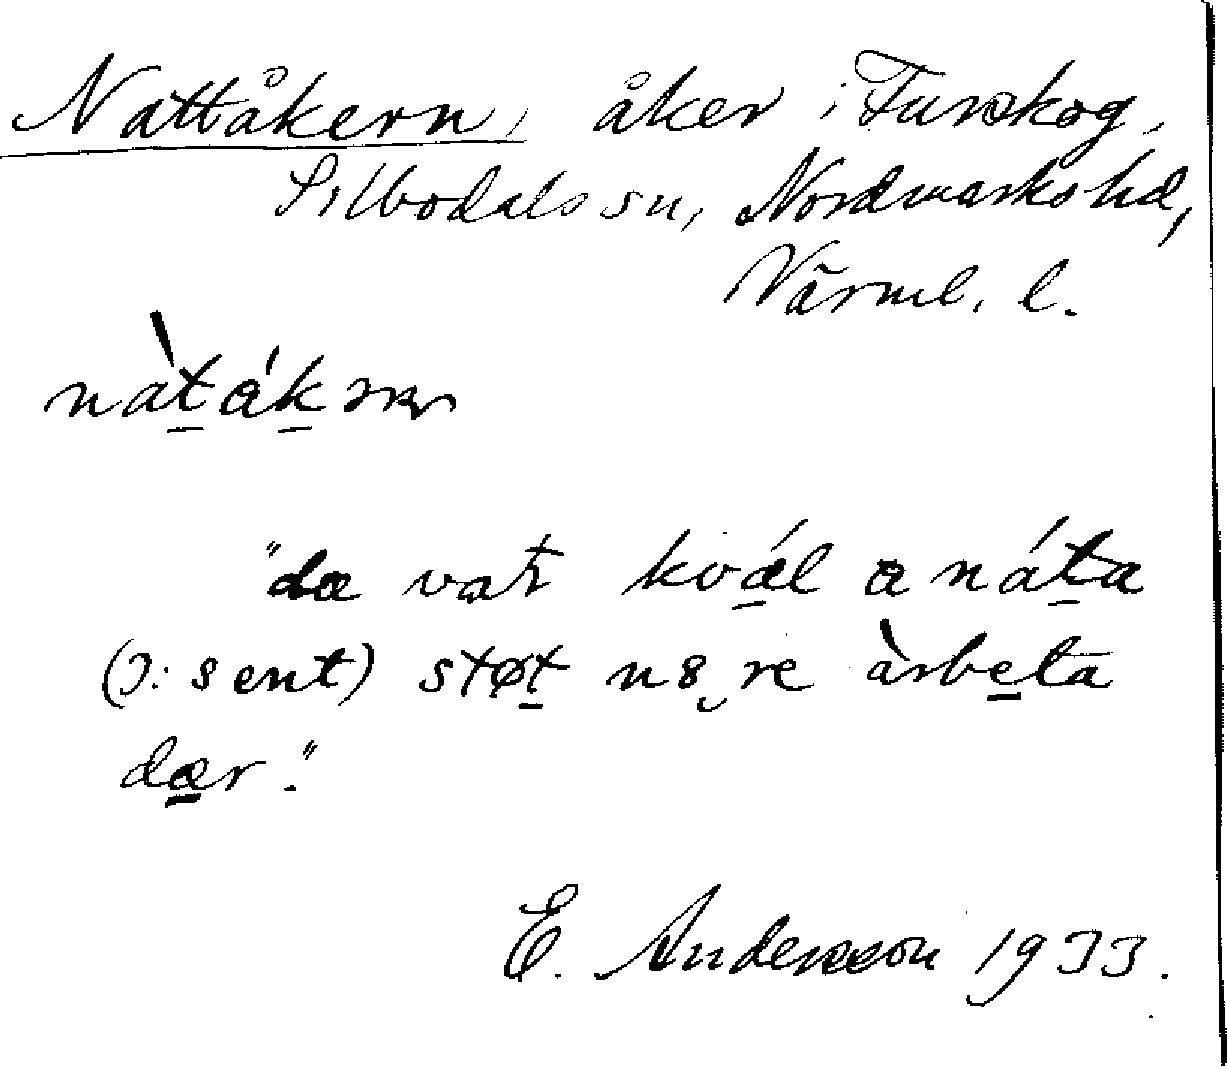 Nattåkern, åker i Furskog,
Silbodals sn, Nordmarks hd,
Värml. l.
nàt̲ ák̲əɳ
"dæ vat kvǽ̲l a nát̲a
(ɔ: sent) støt̲ n8̮re àrbe̲ta
dæ̲r."
E. Andersson 1933.